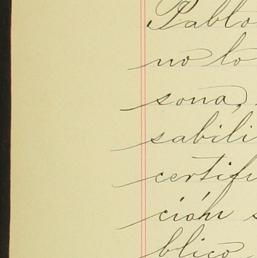 Pablo
no lo
sona,
sabili
certifi
ción s
blico